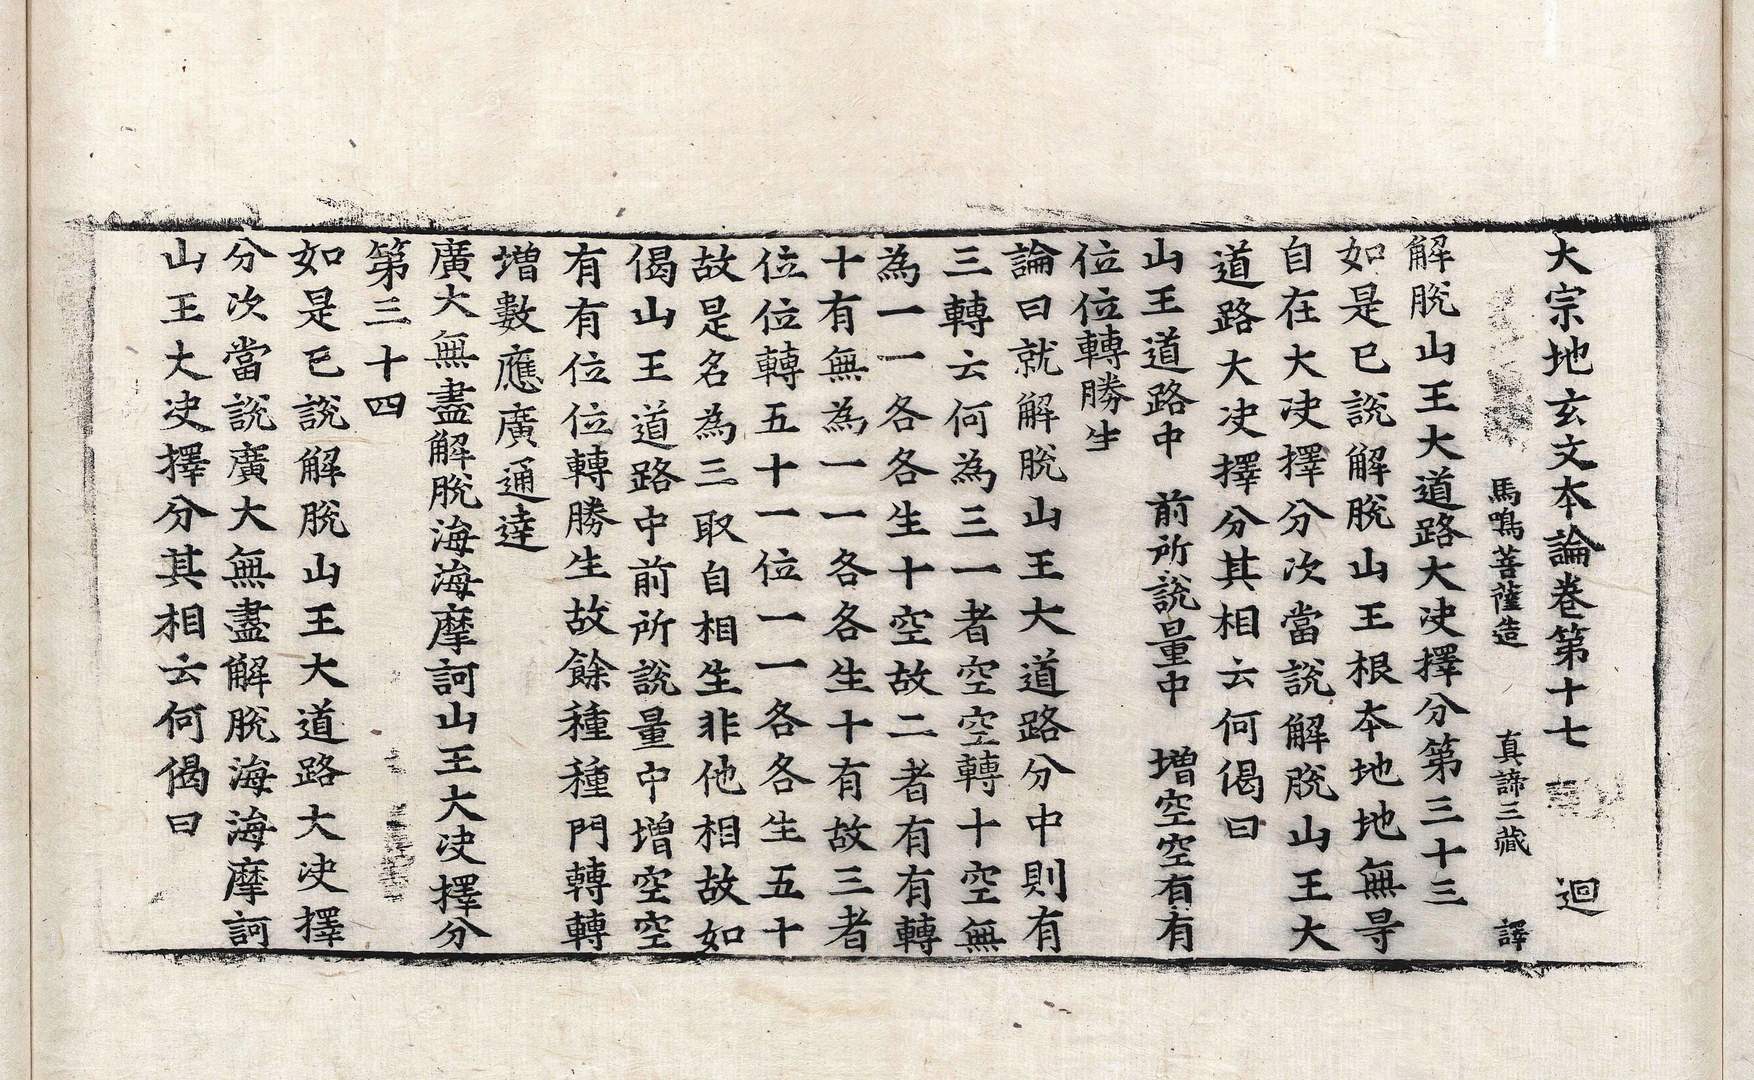 大宗地玄文本論卷第十七 迴
馬鳴菩薩造 真諦三藏 譯
解脫山王大道路大决擇分第三十三
如是已說解脫山王根本地地無㝵
自在大决擇分次當說解脫山王大
道路大决擇分其相云何偈曰
山王道路中 前所說量中 增空空有有
位位轉勝生
論曰就解脫山王大道路分中則有
三轉云何為三一者空空轉十空無
為一一各各生十空故二者有有轉
十有無為一一各各生十有故三者
位位轉五十一位一一各各生五十
故是名為三取自相生非他相故如
偈山王道路中前所說量中增空空
有有位位轉勝生故餘種種門轉轉
增數應廣通達
廣大無盡解脫海海摩訶山王大决擇分
第三十四
如是已說解脫山王大道路大决擇
分次當說廣大無盡解脫海海摩訶
山王大决擇分其相云何偈曰